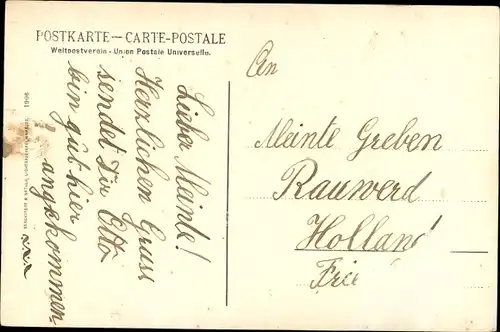 POSTKARTE — CARTE-POSTALE
Weltpostverein - Union Postale Universelle.
Lieber Meinte!
Herzlichen Gruss
sendet Dir Otto
bin gut hier
angekommen
1906
An
Meinte Greben
Rauwerd
Holland